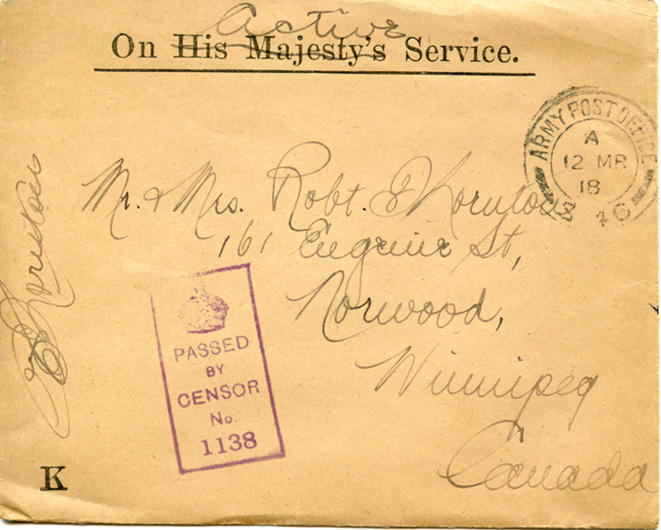 Active
On His Majesty's Service.
ARMY POST OFFICE
A
12 MR
18
46
Mr. & Mrs. Robt. Thornton
161 Eugenie St,
Norwood,
Winnipeg
Canada
PASSED
BY
CENSOR
No.
1138
K